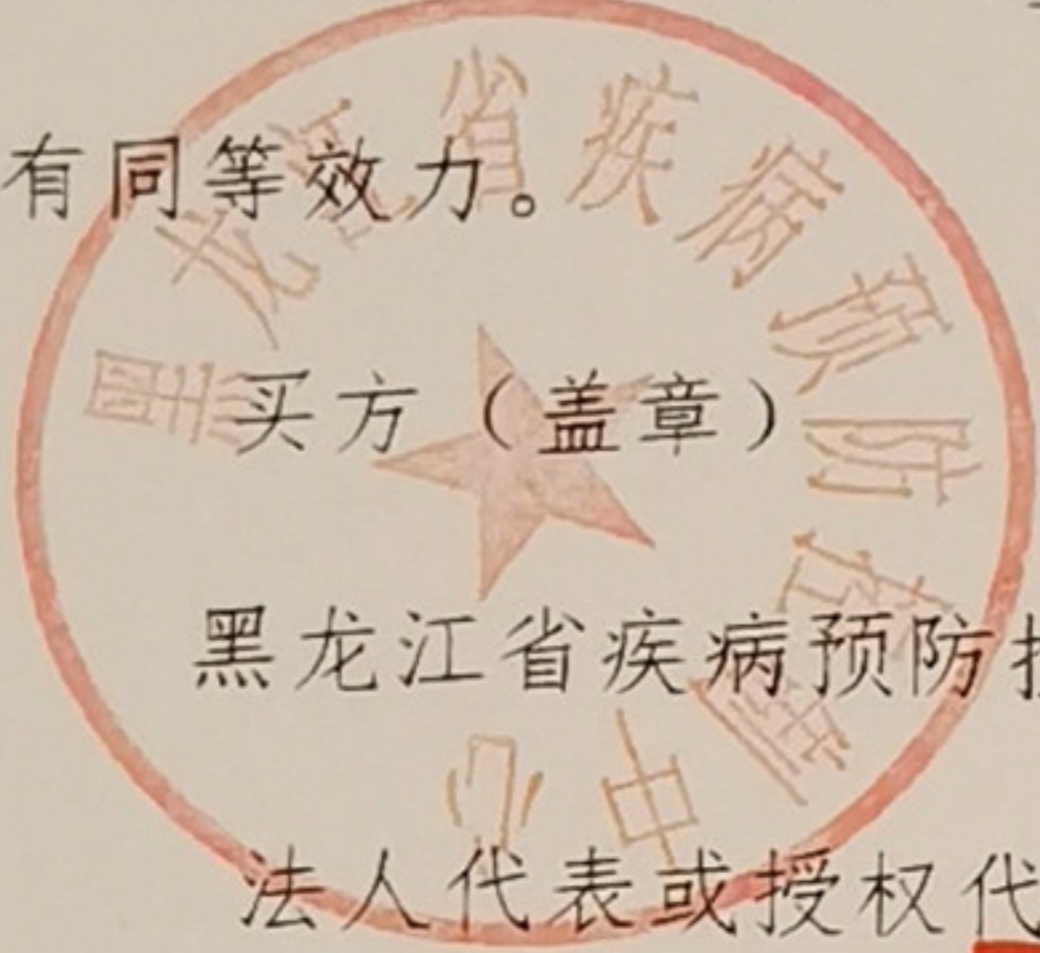 有同等效力。
买方（盖章）
黑龙江省疾病预防
法人代表或授权代
黑龙江省疾病预防控制中心